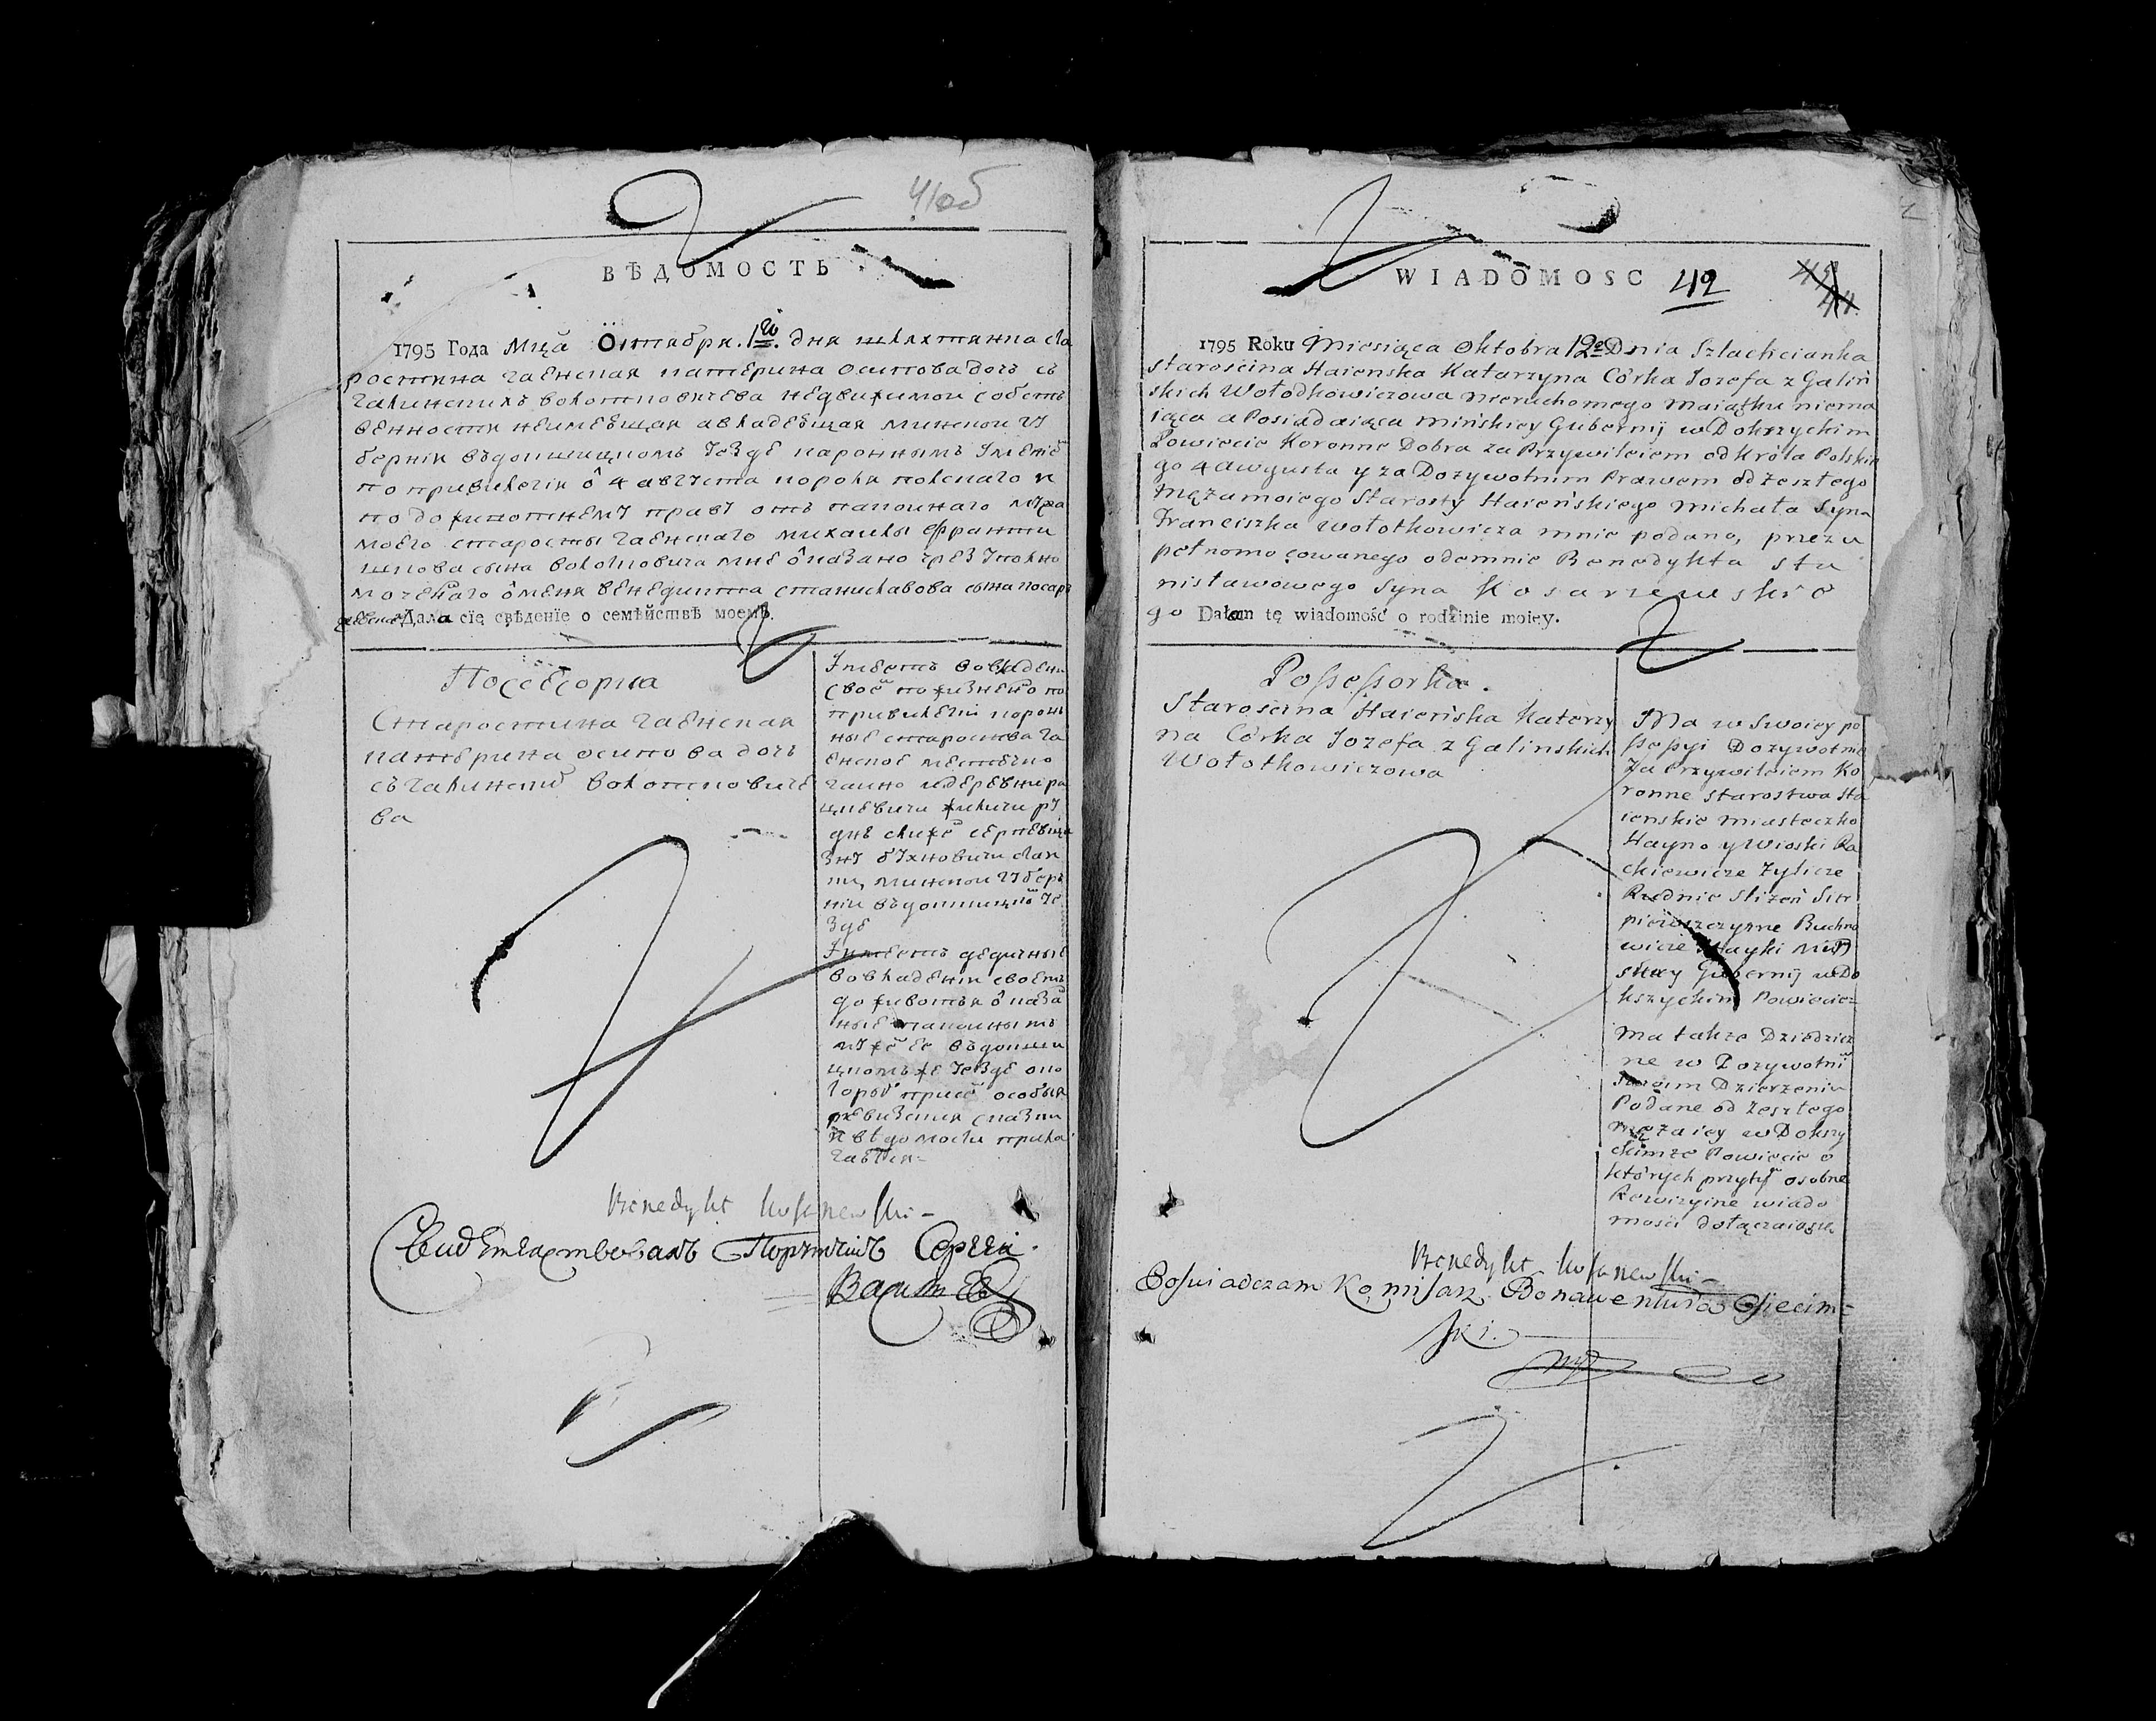 41об
ВѢДОМОСТЬ
1795 Года Мца Октября 1го дня шляхтянка ста
ростина гаенская катерина осипова дочь съ
галинскихъ волотковичева недвижимой собст
венности неимеющая авладеющая минской гу
бернiи въдокшицкомъ уезде коронныимъ Имение
по привилегiи 4 августа короля полскаго и
по доживотнему праву отъ покойнаго мужа
моего старосты гаенскаго михаилы Франти
шкова сына волотковича мне оказано чрез Уполно
моченаго оменя венедикта станиславова сына косар
жевскаго Дала сїе свѣденїе о семѣйствѣ моемъ.
Посесорка
Старостина гаенская
катерина осипова дочъ
съ галинских волотковиче
ва
Имеетъ вовладени
своем пожизнено по
привилегiи корон
ные староства га
енское местечко
гаино идеревни ра
цкевичи жиличи ру
дня
бухновичи
минской губер
нiи въдокшицком уе
зде
Имеетъ дедичные
вовладенiи своемъ
доживотъя оказа
ные покоиным
мужем ее въдокши
цкомъже уезде око
торых присем особыя
ревизския сказки
ведомости прила
гаются
Benedykt Kosarzewski
Свидѣтельствовалъ Порутчикъ Сергей
WIADOMOSC 42
1795 Roku Miesiąca Oktobra 12go Dnia Szlachcianka
Starościna Haieńska Katarzyna Córka Jozefa z Galiń
skich Wołodkowiczowa nieruchomego maiątku niema
iąca a Posiadaiąca Mińskiey Gubernij w Dokszyckim
Powiecie Koronne Dobra za Przywileiem od Króla Polskie
go 4 Awgusta y za Dozywotnim Prawem od Zeszłego
Męża moiego Starosty Haieńskiego Michała Syna
Franciszka Wołotkowicza mnie podano, przez u
pełnomocowanego odemnie Benedykta Sta
nisławowego Syna Kosarzewskie
go Dałam tę wiadomość o rodzinie moiey.
Possessorka.
Starościna Haieńska Katerzy
na Córka Jozefa z Galinskich
Wołotkowiczowa
Ma w Swoiey po
ssessyi Dozywotnie
Za Przywileiem Ko
ronne Starostwa Ha
ienskie Miasteczko
Hayno y Wioski Ra
ckiewicze Zylicze
Rudnie Slizeń Sier
pieiowszczyzne Buchno
wicze Hayki Miń
skiey Gubernij w Do
kszyckim Powiecie
Ma takze Dziedzicz
ne w Dozywotni
Swoim Dzierzeniu
Podane od Zeszłego
męża iey w Dokszy
ckimże Powiecie o
których przytym osobne
Rewizyine wiado
mości dołączaiąsię
Benedykt Kosarzewski
Poświadczam Komisarz Bonawentura Osiecim=
ski.